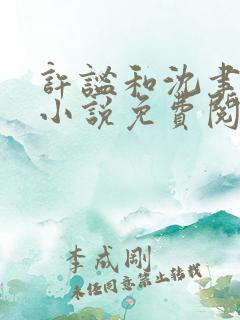 許謐和沈書
小說免費閱
李成剛
未經同意禁止轉載